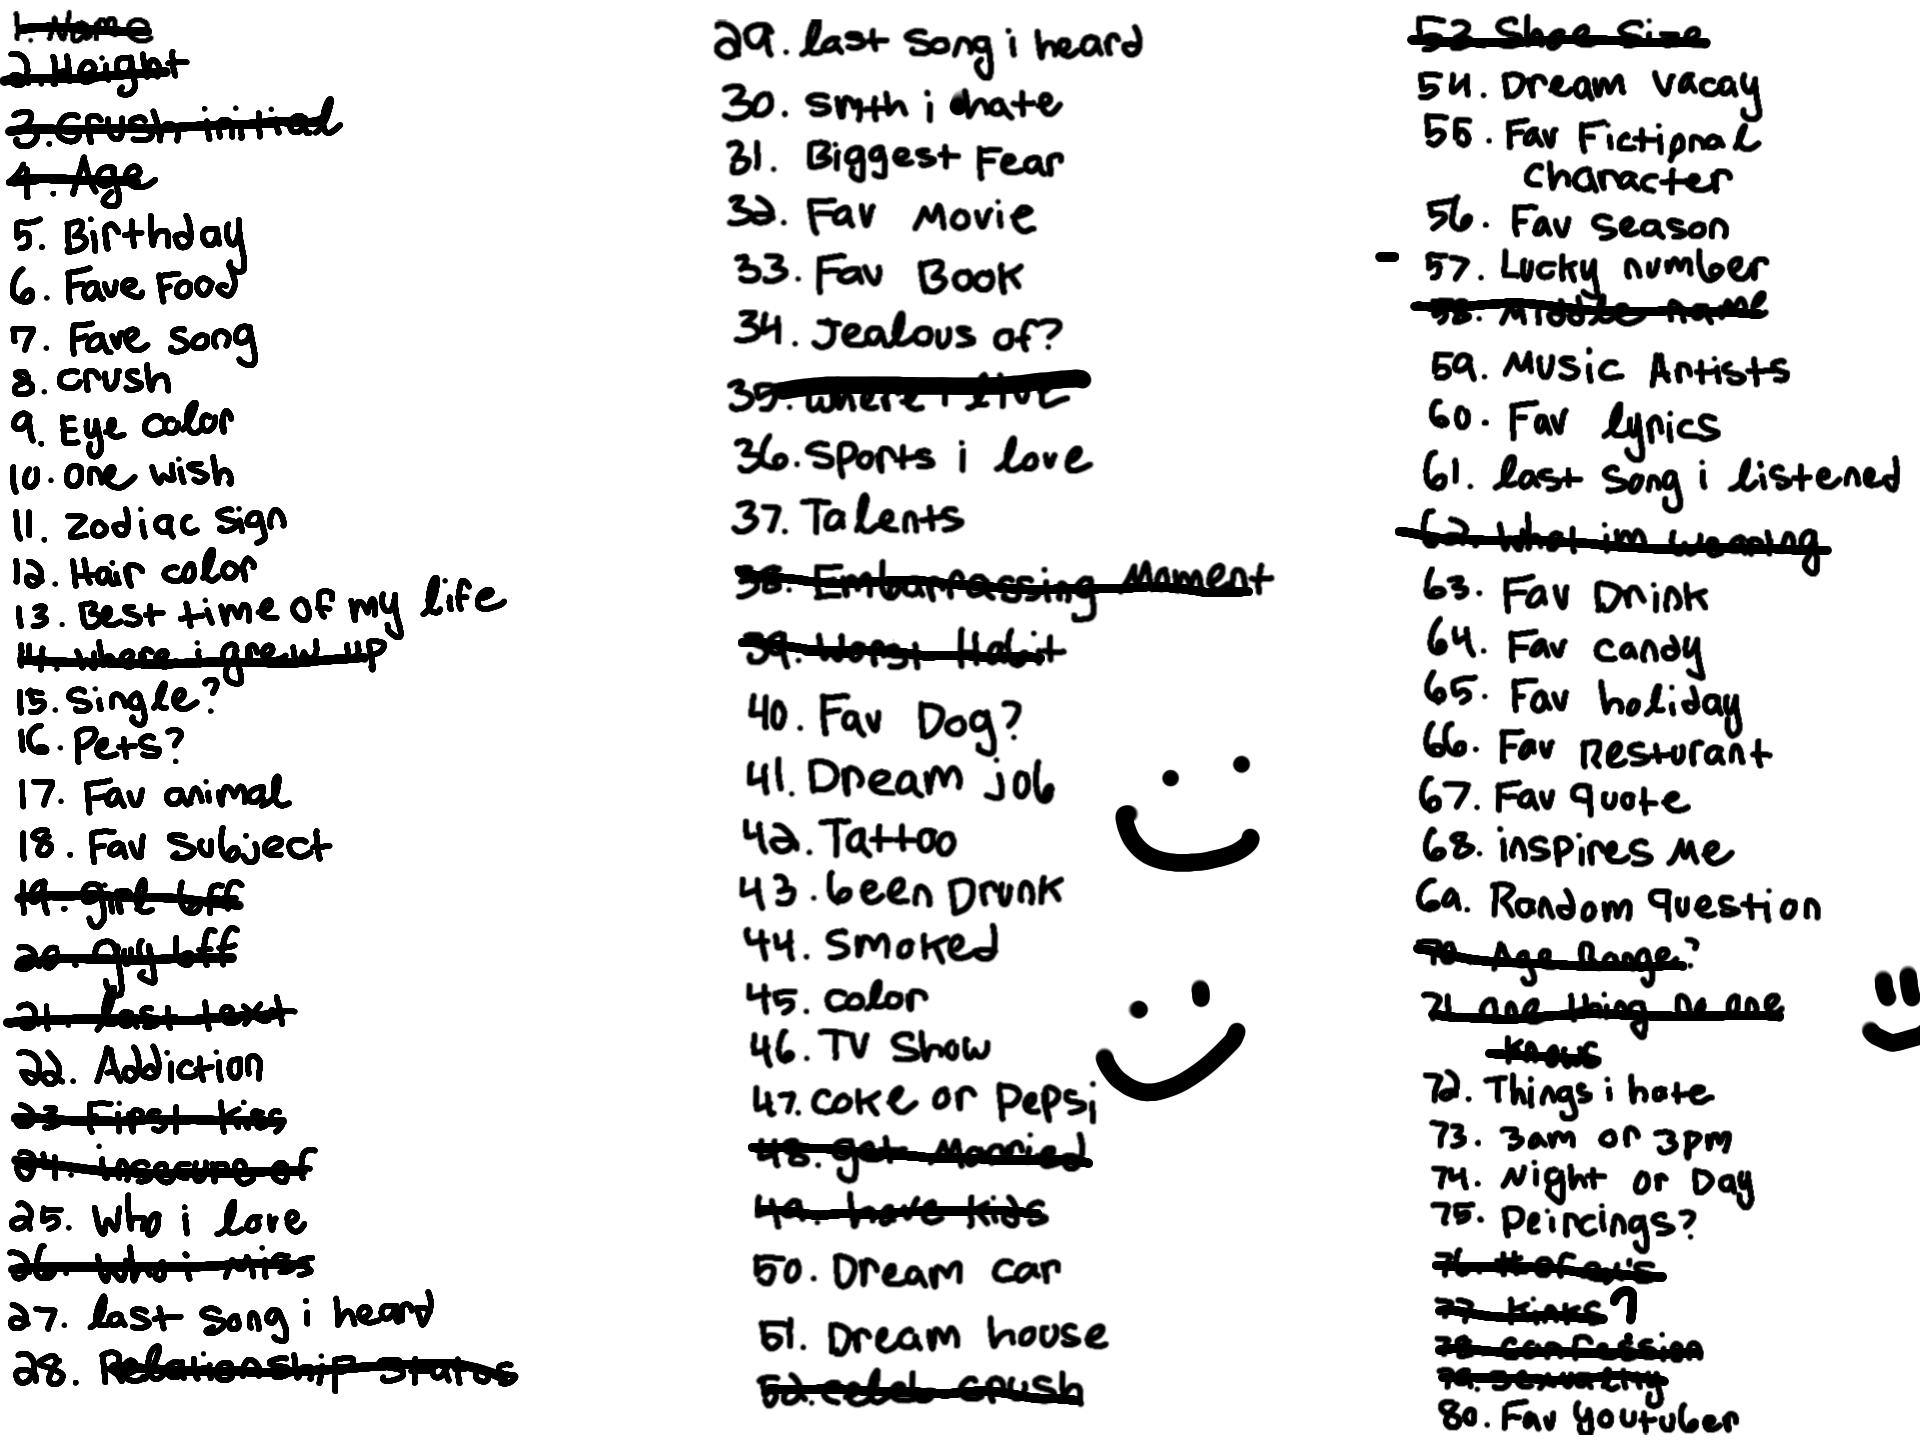 1. Name
2. Height
3. Crush initial
4. Age
5. Birthday
6. Fave Food
7. Fave song
8. crush
9. Eye color
10. one wish
11. zodiac sign
12. Hair color
13. Best time of my life
14. where i grew up
15. Single?
16. Pets?
17. Fav animal
18. Fav subject
19. girl bff
20. guy bff
21. last text
22. Addiction
23 First kiss
24. insecure of
25. Who i love
26. Who i Miss
27. last song i heard
28. Relationship status
29. last song i heard
30. smth i hate
31. Biggest Fear
32. Fav Movie
33. Fav Book
34. Jealous of?
35. where i live
36. Sports i love
37. Talents
38. Embarrassing Moment
39. Worst Habit
40. Fav Dog?
41. Dream job
42. Tattoo
43. been Drunk
44. Smoked
45. color
46. TV Show
47. coke or Pepsi
48. get Married
49. have kids
50. Dream car
51. Dream house
52. celeb crush
53 Shoe Size
54. Dream vacay
55. Fav Fictional
character
56. Fav season
57. Lucky number
58. Middle name
59. Music Artists
60. Fav lyrics
61. last song i listened
62. What im wearing
63. Fav Drink
64. Fav candy
65. Fav holiday
66. Fav Resturant
67. Fav quote
68. inspires me
69. Random question
70. Age Range?
71 one thing no one
knows
72. Things i hate
73. 3am or 3pm
74. Night or Day
75. Peircings?
76. # of ex's
77. kinks?
78. confession
79. sexuality
80. Fav youtuber